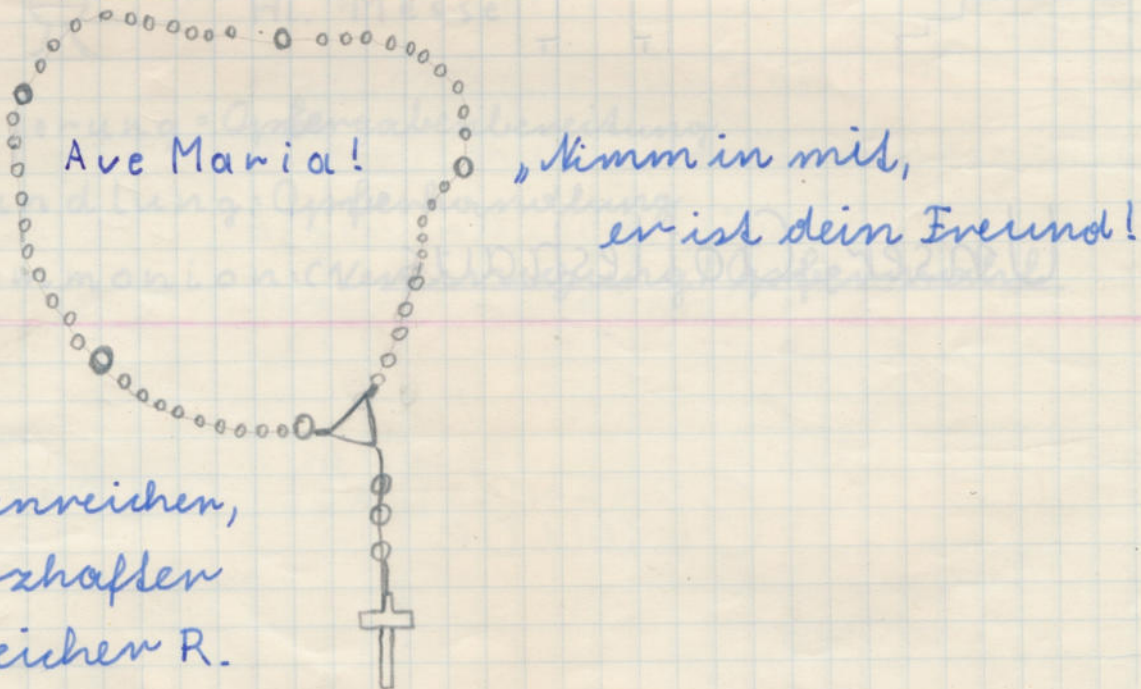 Ave Maria!
„Nimm in mit,
er ist dein Freund!
nreichen,
zhafter
eicher R.